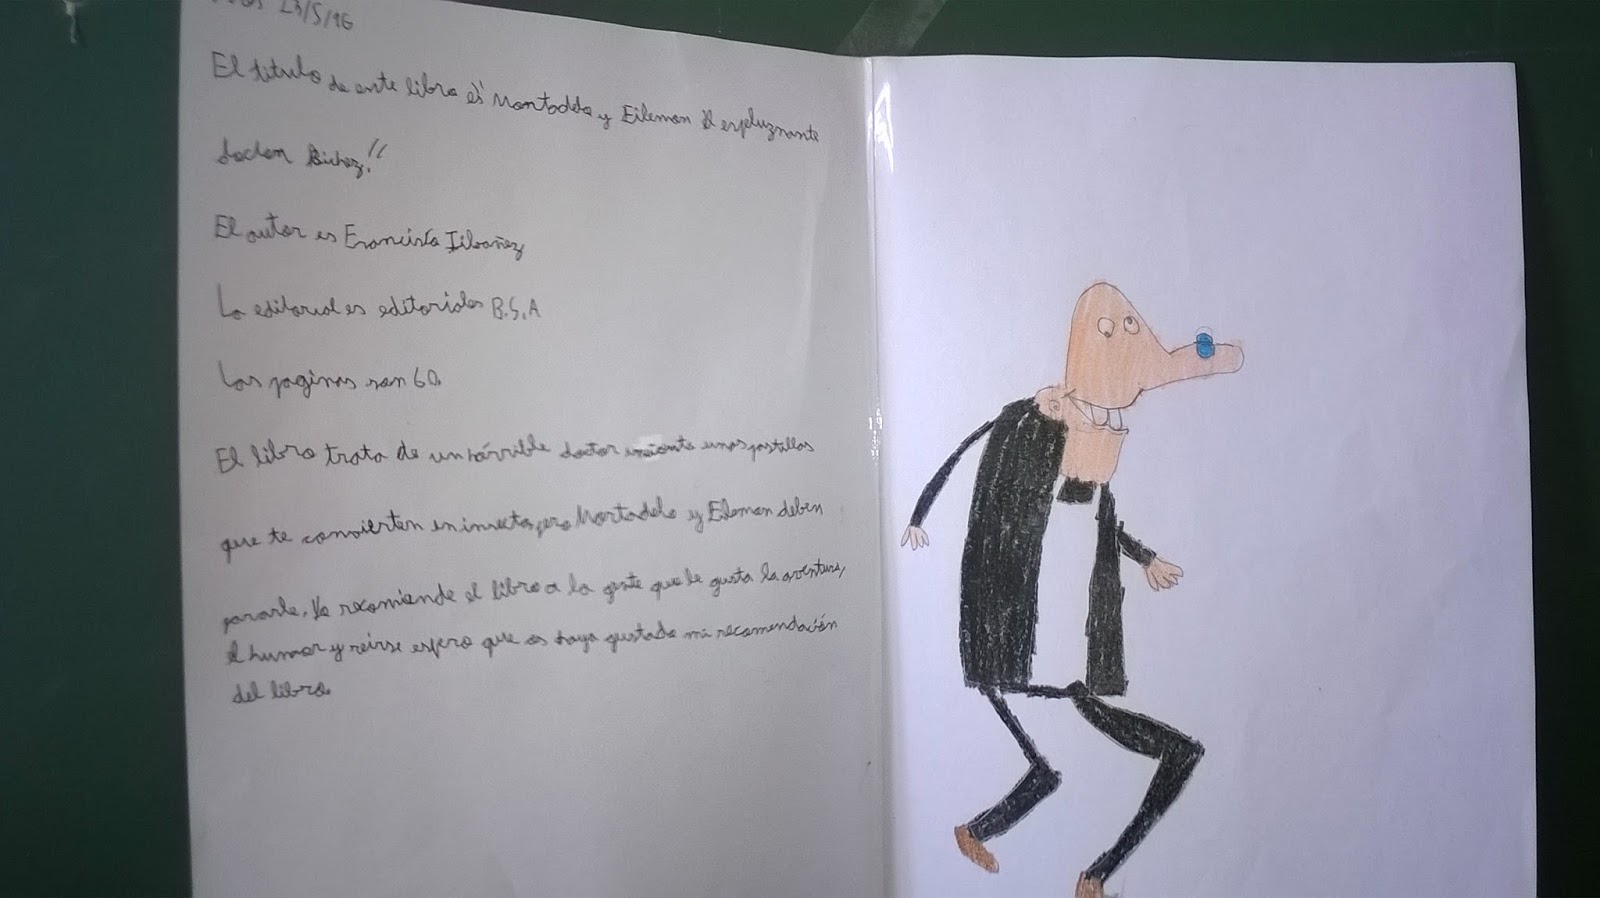 23/5/16
El titulo de este libro es "Mortadelo y Eilemon El espeluznante
doctor Bichez!"
El autor es Francisco Iibañez
La editorial es editoriales B.S,A
Las paginas son 60.
El libro trata de un hórrible doctor unas pastillas
que te convierten en insecto, pero Mortadelo y Filemon deben
pararle. Yo recomiende el libro a la gente que le gusta la aventura,
el humor y reirse espero que os haya gustado mi recomendación
del libro.